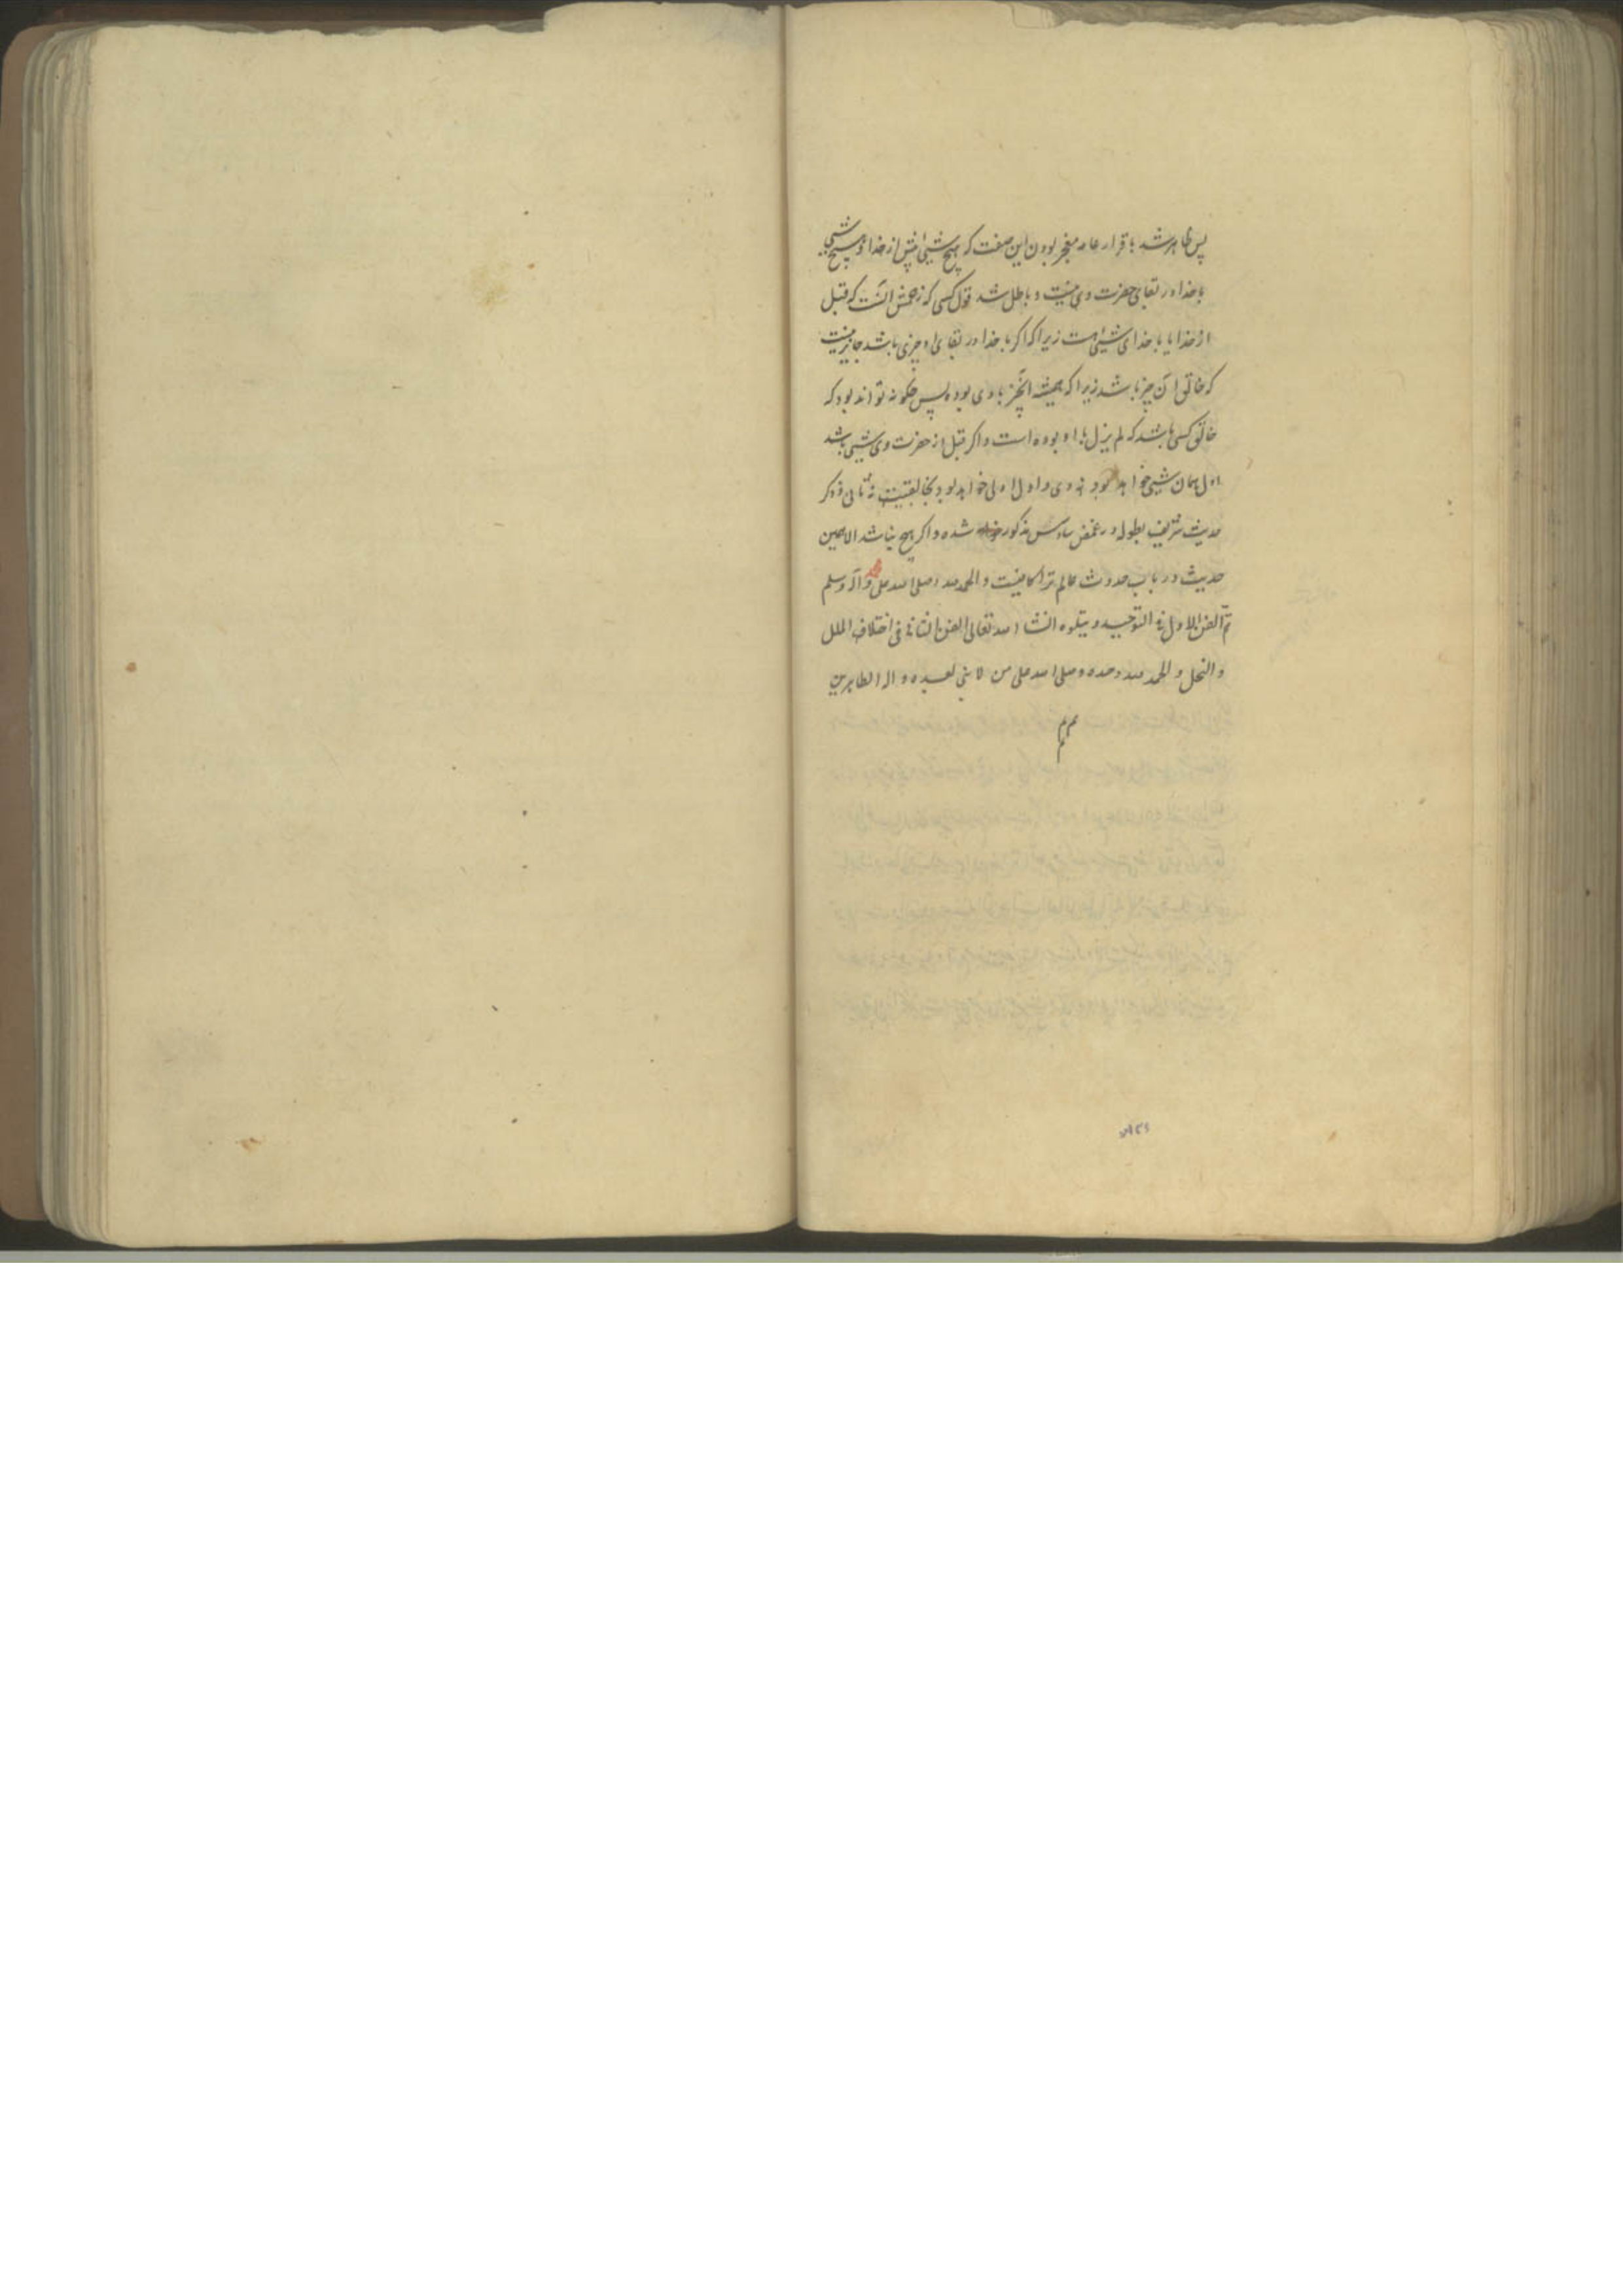 پس ظاهر شد باقرار عامه معجز بودن این صفت که هیچ شیئی پیش از خدا و هیچ شیئی
با خدا در بقای حضرت وی نیست و باطل شد قول کسی که زعمش آنست که قبل
از خدا یا با خدای شیئی هست زیرا که اگر با خدا در بقای او چیزی باشد جایز نیست
که خالق آن چیز باشد زیرا که همیشه آنچیز با وی بوده پس چگونه تواند بود که
خالق کسی باشد که لم یزل با او بوده است و اگر قبل از حضرت وی شیئی باشد
اول همان شیئی خواهد بود نه وی و اول اولی خواهد بود بخالقیت نه ثانی و ذکر
حدیث شریف بطوله در سادس مذکور شده و اگر هیچ نباشد الا همین
حدیث در باب حدوث عالم ترا کافیست و الحمد لله و صلی الله علی محمد و آله و سلم
تم الفن الاول فی التوحید و یتلوه انشاء الله تعالی الفن الثانی فی اختلاف الملل
و النحل و الحمد لله وحده و صلی الله علی من لا نبی بعده و اله الطاهرین